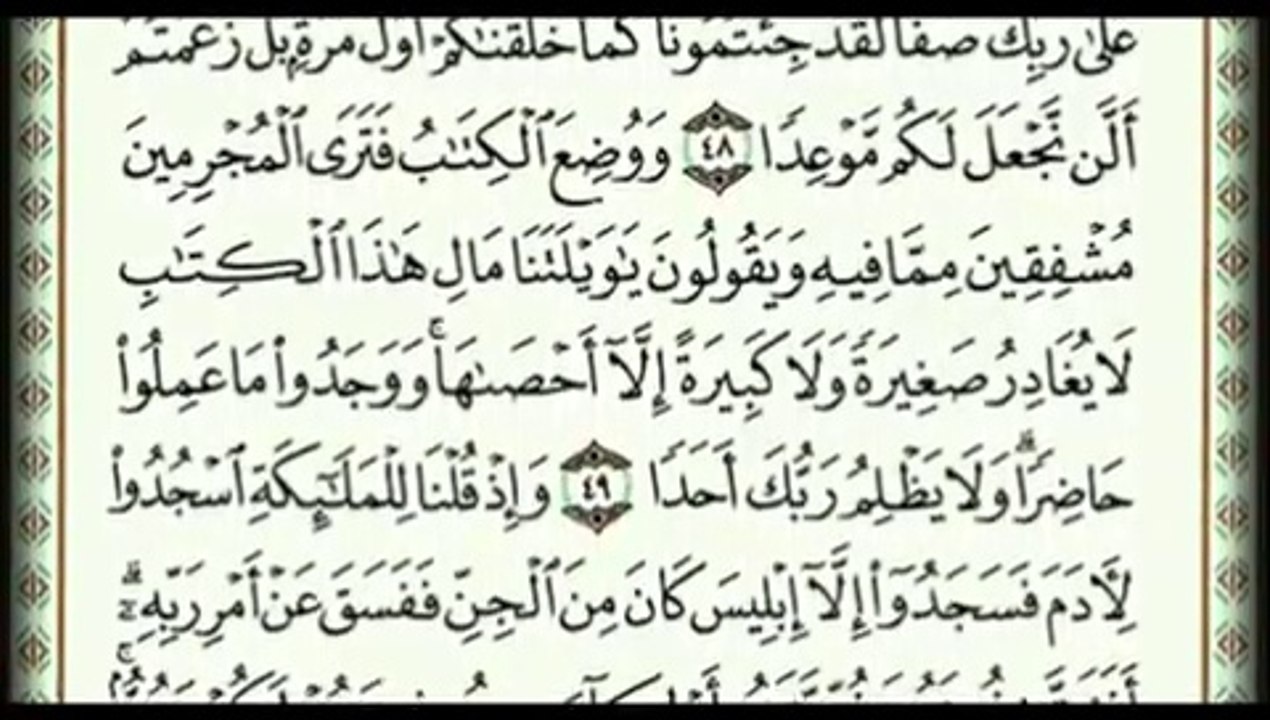 عَلَىٰ رَبِّكَ صَفًّا لَّقَدْ جِئْتُمُونَا كَمَا خَلَقْنَٰكُمْ أَوَّلَ مَرَّةٍۭ بَلْ زَعَمْتُمْ
أَلَّن نَّجْعَلَ لَكُم مَّوْعِدًا ٤٨ وَوُضِعَ ٱلْكِتَٰبُ فَتَرَى ٱلْمُجْرِمِينَ
مُشْفِقِينَ مِمَّا فِيهِ وَيَقُولُونَ يَٰوَيْلَتَنَا مَالِ هَٰذَا ٱلْكِتَٰبِ
لَا يُغَادِرُ صَغِيرَةً وَلَا كَبِيرَةً إِلَّآ أَحْصَىٰهَا ۚ وَوَجَدُوا۟ مَا عَمِلُوا۟
حَاضِرًا ۗ وَلَا يَظْلِمُ رَبُّكَ أَحَدًا ٤٩ وَإِذْ قُلْنَا لِلْمَلَٰٓئِكَةِ ٱسْجُدُوا۟
لِءَادَمَ فَسَجَدُوٓا۟ إِلَّآ إِبْلِيسَ كَانَ مِنَ ٱلْجِنِّ فَفَسَقَ عَنْ أَمْرِ رَبِّهِۦٓ ۗ